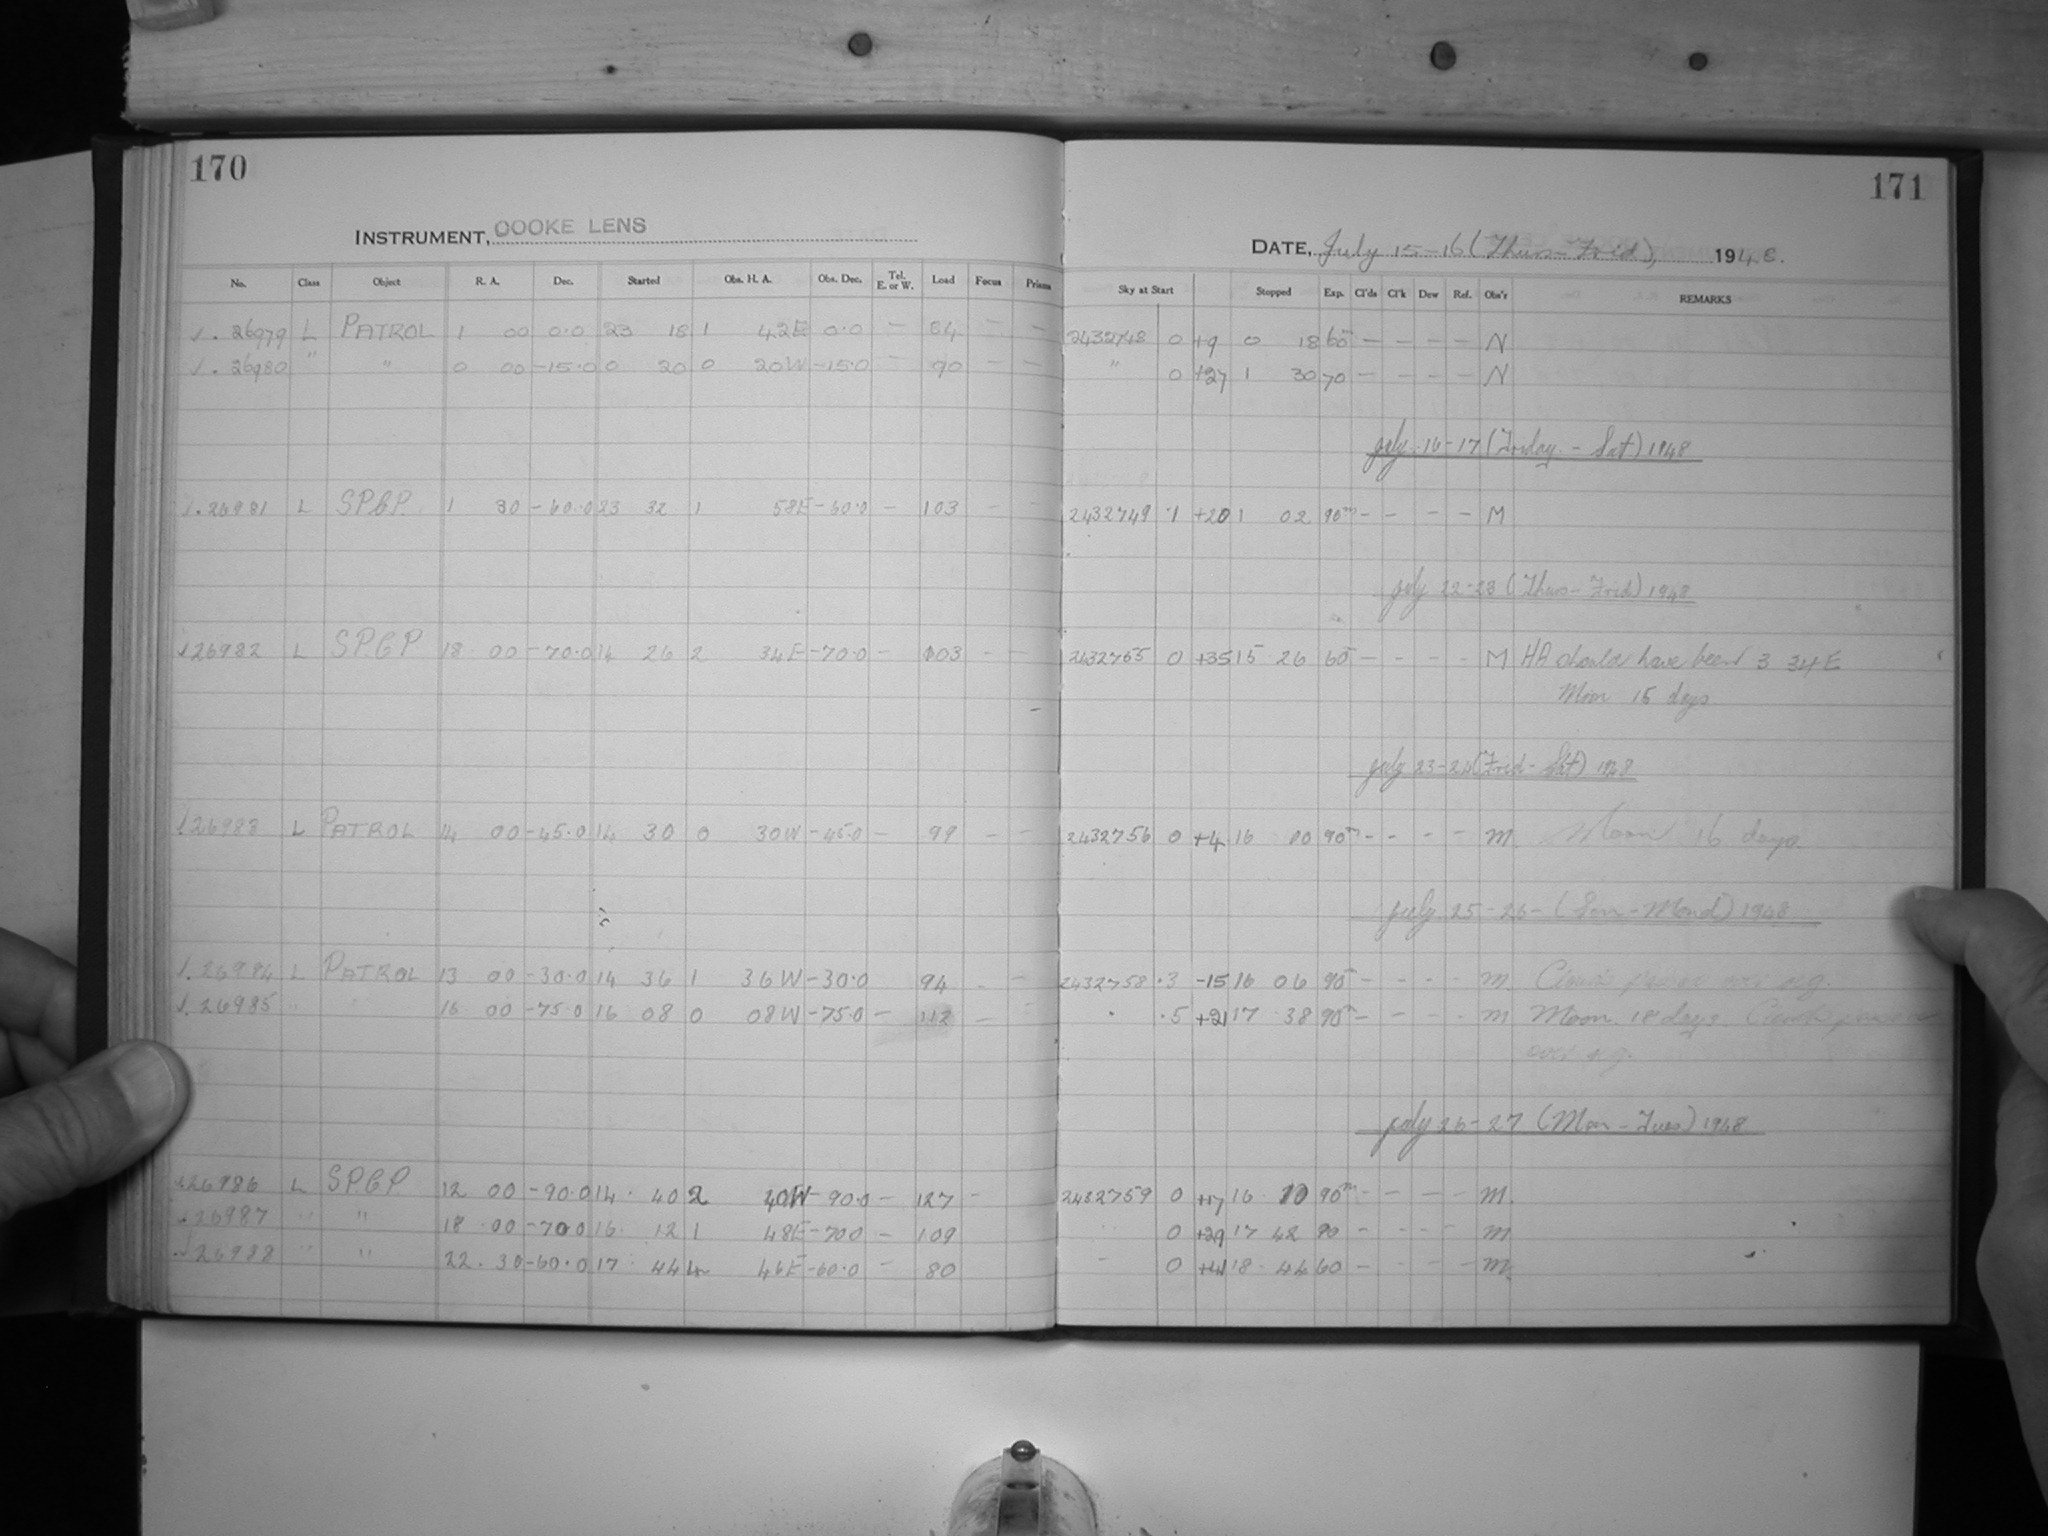 170
INSTRUMENT, COOKE LENS
No. Class Object R. A. Dec. Started Obs. H. A. Obs. Dec. Tel. E. or W. Load Focus Prisms
√. 26979 L PATROL 1 00 0.0 23 18 1 42E 0.0 — 84 — —
√. 26980 " " 0 00 -15.0 0 20 0 20W -15.0 90 — —
√. 26981 L SPGP 1 30 -60.0 23 32 1 58E -60.0 — 103 — —
√26982 L SPGP 18 00 -70.0 14 26 2 34E -70.0 — 103 - -
√26983 L PATROL 14 00 -45.0 14 30 0 30W -45.0 — 99 — —
√. 26984 L PATROL 13 00 -30.0 14 36 1 36W -30.0 94 - -
√. 26985 " 16 00 -75.0 16 08 0 08W -75.0 — 112 —
√26986 L SPGP 12 00 -90.0 14 40 2 40W -90.0 — 127 -
√26987 " " 18 00 -70.0 16 12 1 48E -70.0 — 109
√26988 " " 22 30 -60.0 17 44 4 46E -60.0 — 80
171
DATE, July 15-16 (Thurs-Frid), 1948.
Sky at Start Stopped Exp. Cl'ds Cl'k Dew Ref. Obs'r REMARKS
2432748 0 +9 0 18 60m — — — — N
" 0 +27 1 30 70 — — — — N
July 16-17 (Friday - Sat) 1948
2432749 .1 +20 1 02 90m — — — — M
July 22-23 (Thurs-Frid) 1948
2432755 0 +35 15 26 60 — — — — M HA should have been 3 34E
Moon 15 days
July 23-24 (Frid-Sat) 1948
2432756 0 +4 16 00 90m — — — — M. Moon 16 days
July 25-26- (Sun-Mond) 1948
2432758 .3 -15 16 06 90 — — — — M. Clouds passed over n.g.
. .5 +21 17 38 90 — — — — M Moon 18 days. Clouds passed
over n.g.
July 26-27 (Mon-Tues) 1948
2432759 0 +17 16 10 90m — — — — M.
0 +29 17 42 90 — — — — M
" 0 +41 18 44 60 — — — — M.